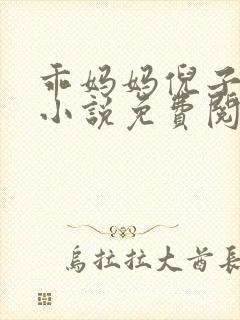 乖妈妈倪子
小説免費閱
烏拉拉大酋長